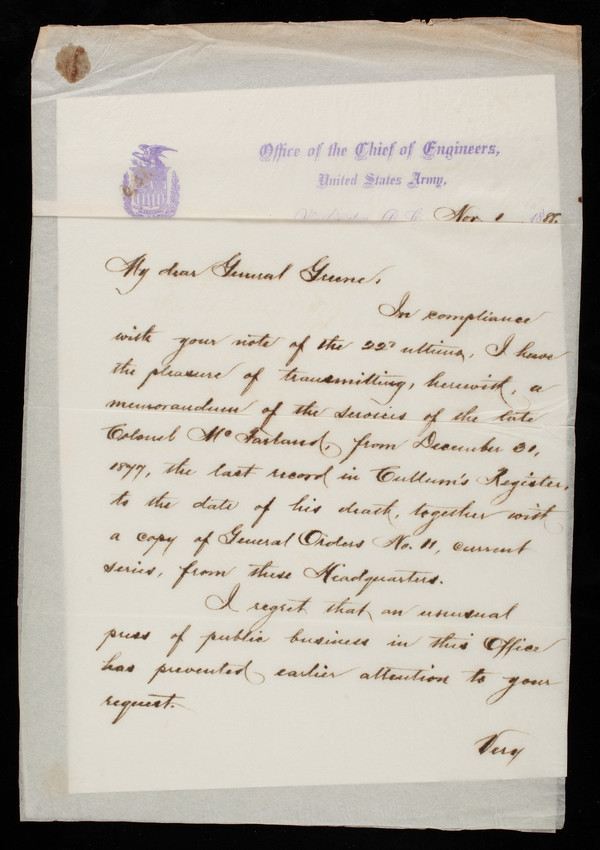 Office of the Chief of Engineers,
United States Army,
Washington, D.C. Nov. 1, 1888.
My dear General Greene,
In compliance
with your note of the 22d ultimo, I have
the pleasure of transmitting, herewith, a
memorandum of the services of the late
Colonel McFarland, from December 31,
1877, the last record in Cullum's Register,
to the date of his death, together with
a copy of General Orders No. 11, current
series, from these Headquarters.
I regret that an unusual
press of public business in this Office
has prevented earlier attention to your
request.
Very